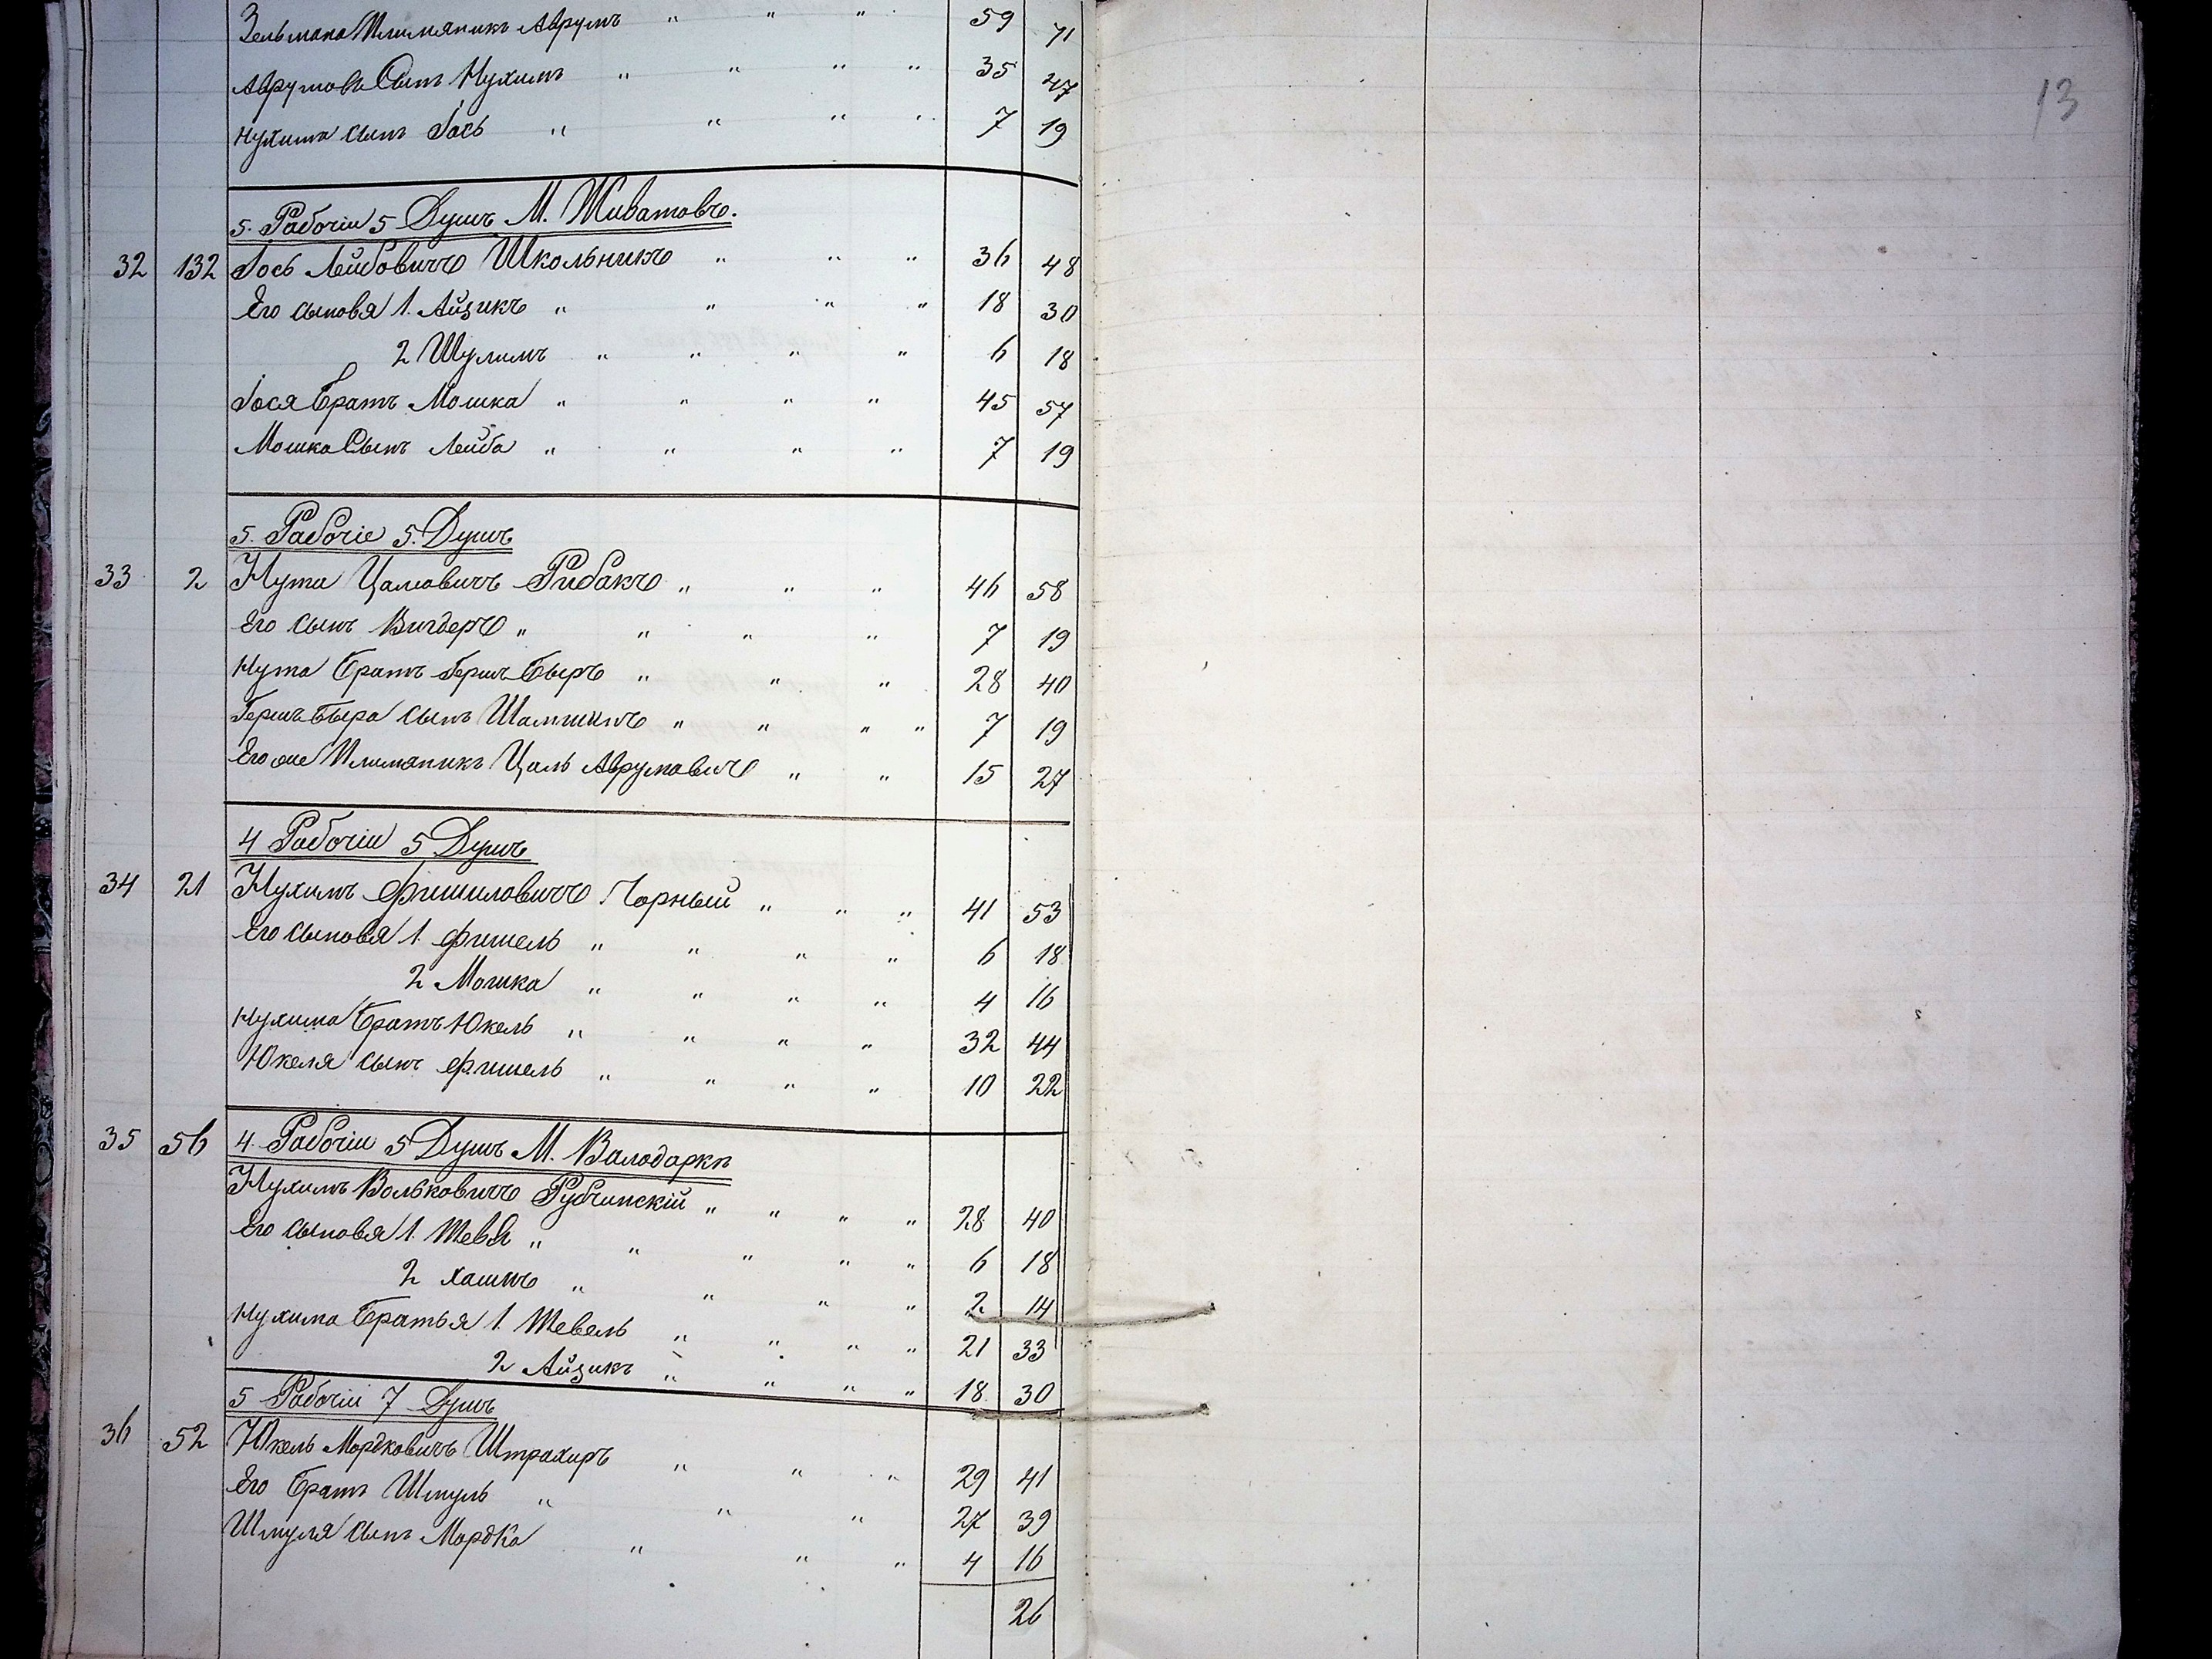 Зельмана Племяникъ Аврумъ " " " 59 71
Аврумова Сынъ Нухимъ " " " " 35 47
Нухима сынъ Іось " " " " 7 19
13
5. Рабочiи 5 Душъ М. Живатовъ.
32 132 Іось Лейбовичъ Школьникъ " " " 36 48
Его сыновя 1. Айзикъ " " " " 18 30
2 Шулимъ " " " " 6 18
Іося братъ Мошка " " " " 45 57
Мошка Сынъ Лейба " " " " 7 19
5. Рабочіе 5. Душъ
33 2 Нута Цалювичъ Рибакъ " " " 46 58
Его сынъ Вигдеръ " " " " 7 19
Нута братъ Гершъ Беръ " " " 28 40
Гершъ Бера сынъ " " " " 7 19
Его же Племяникъ Цаль Аврумовичъ " " 15 27
4 Рабочіи 5 Душъ
34 21 Нухимъ Фишиловичъ Чорный " " " 41 53
Его сыновя 1. Фишель " " " " 6 18
2 Мошка " " " " 4 16
Нухима братъ Юкель " " " " 32 44
Юкеля сынъ Фишель " " " " 10 22
35 56 4. Рабочіи 5 Душъ М. Валодарки
Нухимъ Вольковичъ Рубчинскій " " " " 28 40
Его сыновя 1. " " " " " 6 18
2 " " " " 2 14
Нухима братья 1. Шевель " " " " 21 33
2 Айзикъ " " " " 18 30
5 Рабочіи 7 Душъ
36 52 Юкель Мордковичъ Штрахиръ " " " 29 41
Его братъ Шмуль " " " 27 39
Шмуля сынъ Мордка " " " 4 16
26